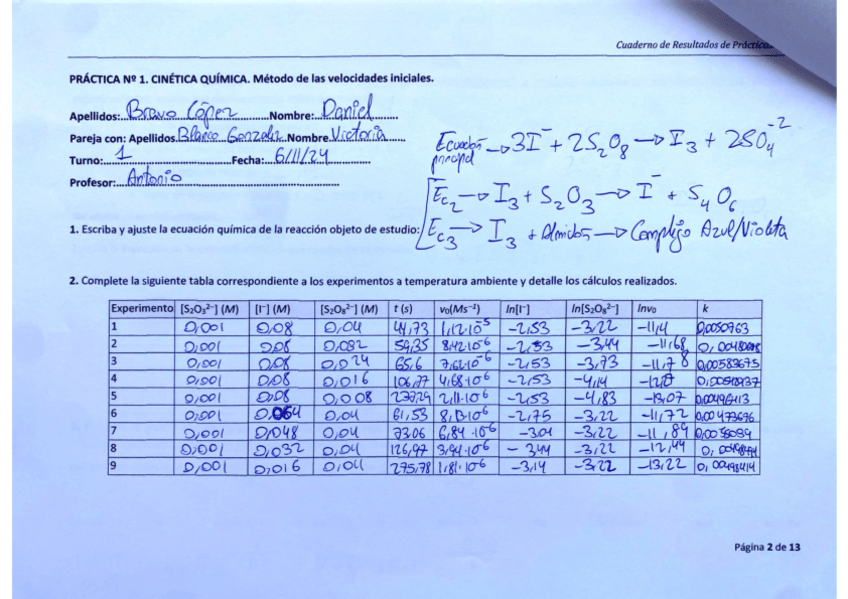 Cuaderno de Resultados de Práctic
PRÁCTICA Nº 1. CINÉTICA QUÍMICA. Método de las velocidades iniciales.
Apellidos: Bravo López Nombre: Daniel
Pareja con: Apellidos Blanco Gonzalez Nombre Victoria
Turno: 1 Fecha: 6/11/24
Profesor: Antonio
Ecuación principal → 3I⁻ + 2S₂O₈ → I₃ + 2SO₄⁻²
Ec₂ → I₃ + S₂O₃ → I⁻ + S₄O₆
1. Escriba y ajuste la ecuación química de la reacción objeto de estudio: Ec₃ → I₃ + Almidón → Complejo Azul/Violeta
2. Complete la siguiente tabla correspondiente a los experimentos a temperatura ambiente y detalle los cálculos realizados.
Experimento [S₂O₃²⁻] (M) [I⁻] (M) [S₂O₈²⁻] (M) t (s) v₀(Ms⁻¹) ln[I⁻] ln[S₂O₈²⁻] lnv₀ k
1 0,001 0,08 0,04 44,73 1,12·10⁻⁵ -2,53 -3,22 -11,4 0,0050763
2 0,001 0,08 0,032 59,35 8,42·10⁻⁶ -2,53 -3,44 -11,68
3 0,001 0,08 0,024 65,6 7,62·10⁻⁶ -2,53 -3,73 -11,78 0,00583675
4 0,001 0,08 0,016 106,77 4,68·10⁻⁶ -2,53 -4,14
5 0,001 0,08 0,008 237,29 2,11·10⁻⁶ -2,53 -4,83 -13,07 0,00496413
6 0,001 0,064 0,04 61,53 8,13·10⁻⁶ -2,75 -3,22 -11,72 0,00473676
7 0,001 0,048 0,04 73,06 6,84·10⁻⁶ -3,04 -3,22 -11,89
8 0,001 0,032 0,04 126,97 3,94·10⁻⁶ -3,44 -3,22 -12,44
9 0,001 0,016 0,04 275,78 1,81·10⁻⁶ -3,14 -3,22 -13,22 0,00498414
Página 2 de 13